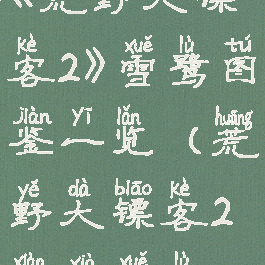 《荒野大镖
kè xuě lù tú
客2》雪鹭图
jiàn yī lǎn huāng
鉴一览（荒
yě dà biāo kè
野大镖客2
xiàn xià xuě lù